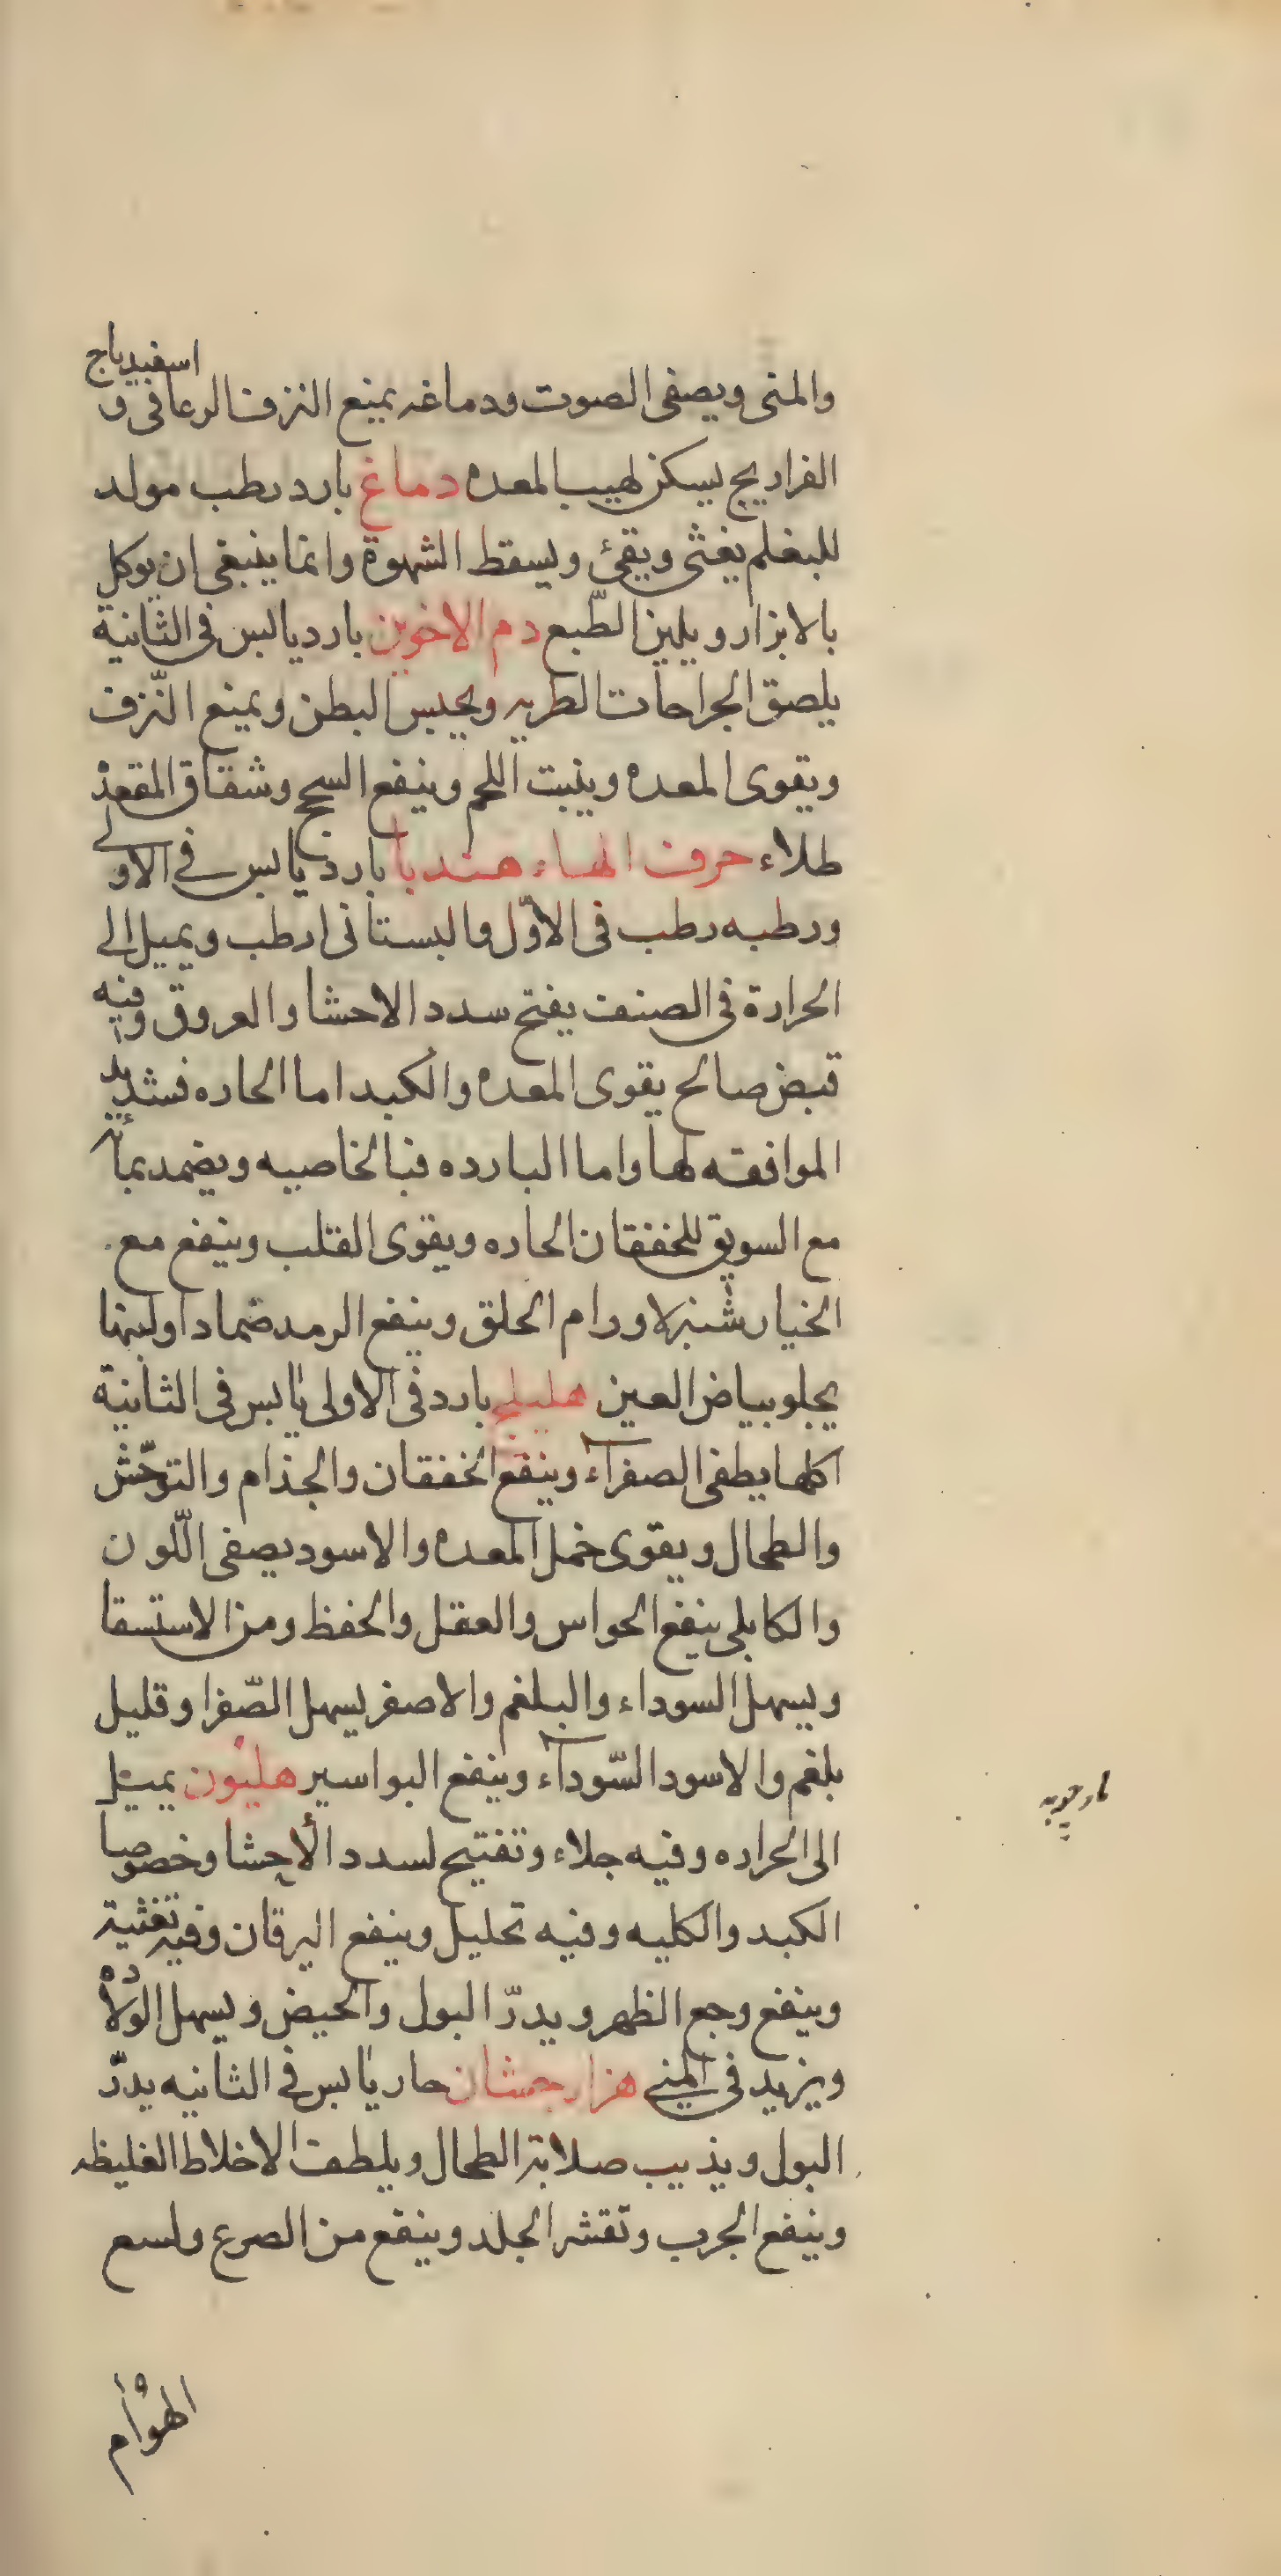 والمنى ويصفى الصوت ودماغه يمنع النزف الرعافى و اسفيدباج
الفراريج يسكن لهيب المعده دماغ بارد رطب مولد
للبغلم يغثى ويقئ ويسقط الشهوة وانما ينبغى ان يوكل
بالابزار ويلين الطّبع دم الاخوين بارد يابس فى الثانية
يلصق الجراحات الطريه ويحبس البطن ويمنع النّزف
ويقوى المعده وينبت اللحم وينفع السحج وشقاق المقعد
طلاء حرف الهاء هندبا بارد يابس فى الاولى
ورطبه رطب فى الاوّل والبستانى ارطب ويميل الى
الحرارة فى الصنف يفتح سدد الاحشا والعروق وفيه
قبض صالح يقوى المعده والكبد اما الحاره فشديد
الموافقه لها واما البارده فبالخاصيه ويضمد بمائه
مع السويق للخفقان الحاره ويقوى القلب وينفع مع
الخيار شنبر لاورام الحلق وينفع الرمد ضمادا ولبنها
يجلو بياض العين هليلج بارد فى الاولى يابس فى الثانية
اكلها يطفى الصفرآء وينفع الخفقان والجذام والتوحّش
والطحال ويقوى خمل المعده والاسود يصفى اللّون
والكابلى ينفع الحواس والعقل والحفظ ومن الاستسقا
ويسهل السوداء والبلغم والاصفر يسهل الصّفرا وقليل
بلغم والاسود السّودآء وينفع البواسير هليون يميل
الى الحراره وفيه جلاء وتفتيح لسدد الأحشا وخصوصا
الكبد والكليه وفيه تحليل وينفع اليرقان وفيه تغثية
وينفع وجع الظهر ويدرّ البول والحيض ويسهل الولاده
ويزيد فى المنى هزارجشان حار يابس فى الثانيه يدرّ
البول ويذيب صلابة الطحال ويلطف الاخلاط الغليظه
وينفع الجرب وتقشر الجلد وينفع من الصرع ولسع
الهوام
مارچوبه